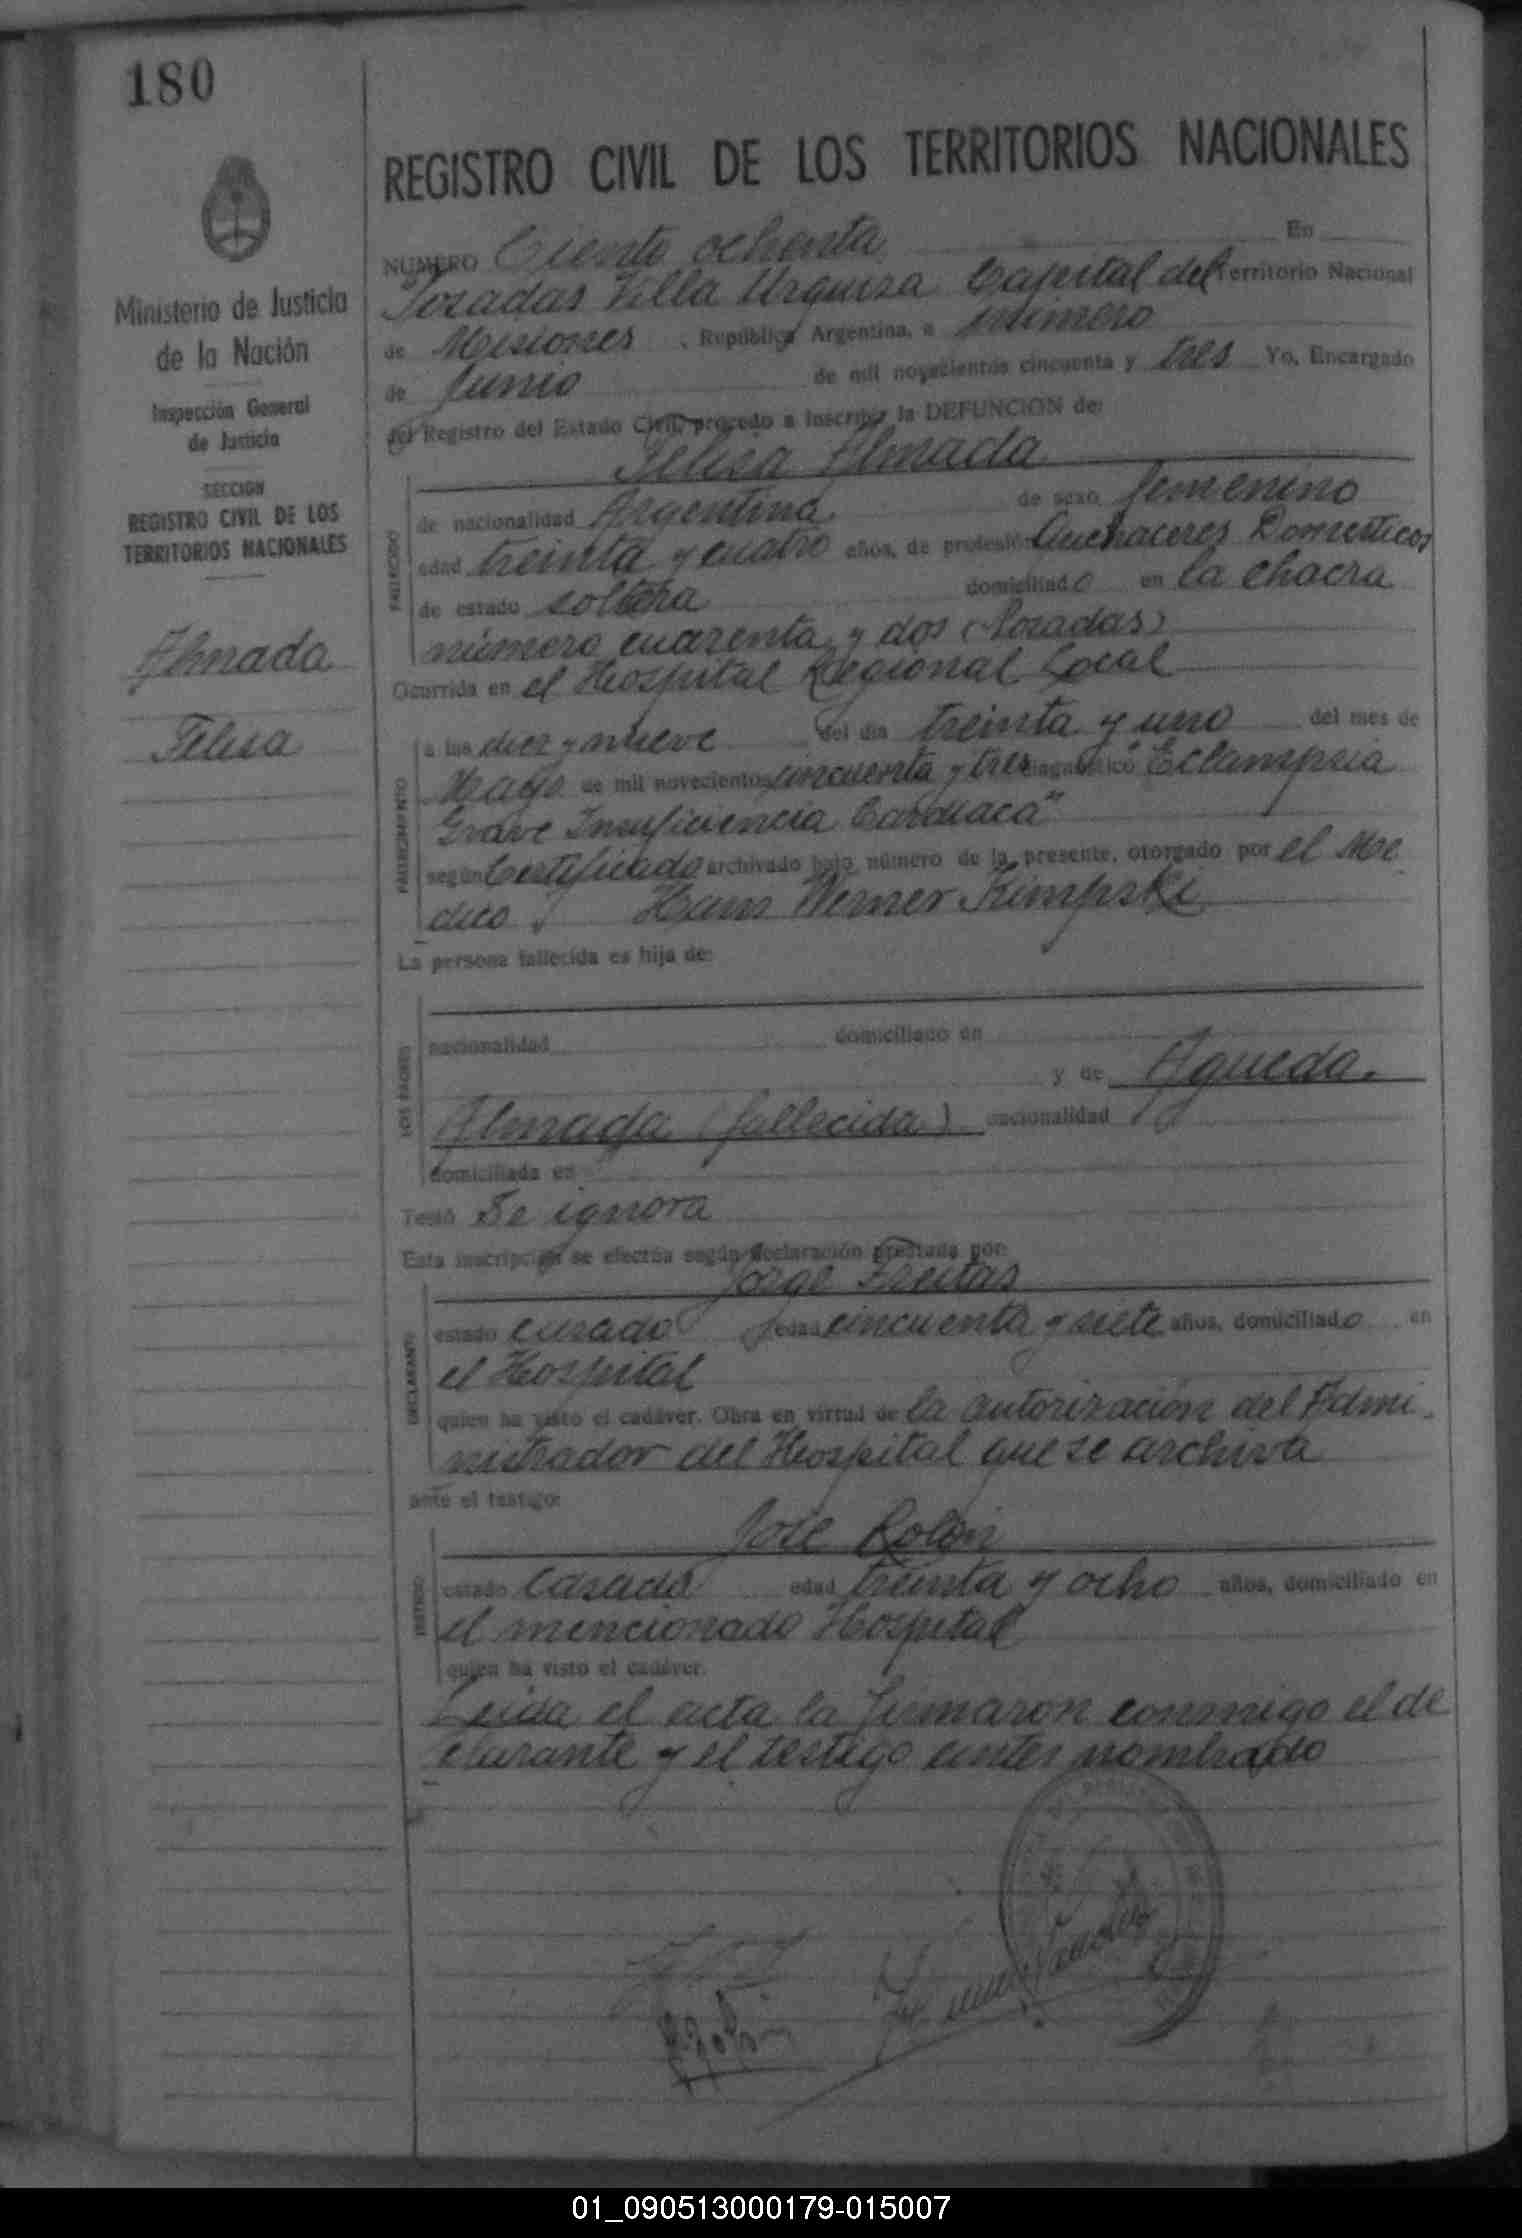 180
Ministerio de Justicia
de la Nación
Inspección General
de Justicia
SECCION
REGISTRO CIVIL DE LOS
TERRITORIOS NACIONALES
Almada
Telisa
REGISTRO CIVIL DE LOS TERRITORIOS NACIONALES
NUMERO Ciento ochenta En
Posadas Villa Urquiza Capital del Territorio Nacional
de Misiones, República Argentina, a primero
de Junio de mil novecientos cincuenta y tres Yo, Encargado
del Registro del Estado Civil, procedo a inscribir la DEFUNCION de:
Telisa Almada
FALLECIDO
de nacionalidad Argentina de sexo femenino
edad treinta y cuatro años, de profesión Quehaceres Domesticos
de estado soltera domiciliado en la chacra
número cuarenta y dos (Posadas)
Ocurrida en el Hospital Regional Local
FALLECIMIENTO
a las diez y nueve del dia treinta y uno del mes de
Mayo de mil novecientos cincuenta y tres diagnóstico "Eclampsia
Grave Insuficiencia Cardiaca"
según Certificado archivado bajo número de la presente, otorgado por el Me
dico Hans Werner Kimpski
La persona fallecida es hija de:
LOS PADRES
nacionalidad domiciliado en
y de Agueda
Almada (fallecida) nacionalidad
domiciliada en
Testó Se ignora
Esta inscripción se efectúa según declaración prestada por:
Jorge Freitas
DECLARANTE
estado casado edad cincuenta y siete años, domiciliado en
el Hospital
quien ha visto el cadáver. Obra en virtud de la autorización del Admi-
nistrador del Hospital que se archiva
ante el testigo:
José Rolón
TESTIGO
estado Casado edad treinta y ocho años, domiciliado en
el mencionado Hospital
quien ha visto el cadáver.
Leida el acta la firmaron conmigo el de
clarante y el testigo antes nombrado
01_090513000179-015007